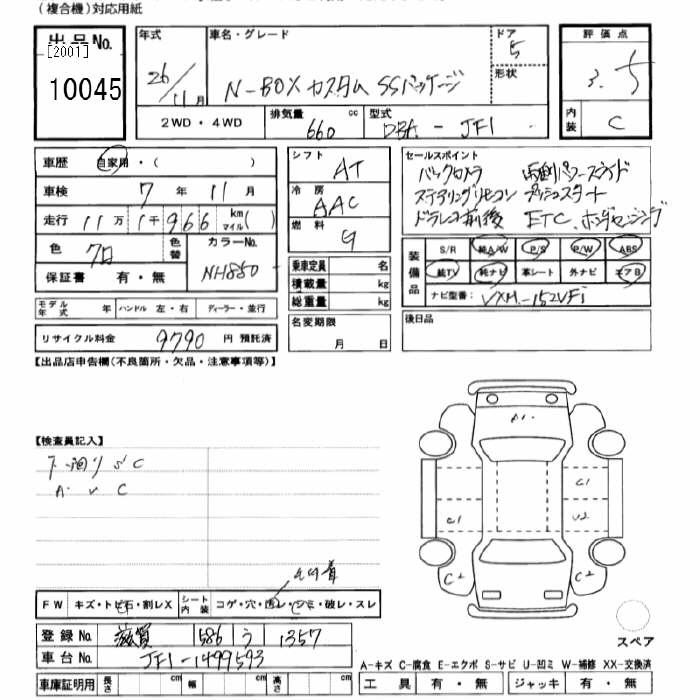 (複合機)対応用紙
出品No.
[2001]
10045
年式
26/11月
車名・グレード
N-BOX カスタム SSパッケージ
ドア
5
形状
評価点
3.5
内装
C
2WD・4WD
排気量 660 cc
型式 DBA - JF1
車歴 自家用・( )
車検 7年 11月
走行 11万 1千 966 km マイル( )
色 クロ 色替
カラーNo. NH850
保証書 有・無
モデル年式 年 ハンドル 左・右 ディーラー・並行
リサイクル料金 9790 円 預託済
シフト AT
冷房 AAC
燃料 G
乗車定員 名
積載量 kg
総重量 kg
名変期限
月 日
セールスポイント
バックカメラ 両側パワースライド
ステアリングリモコン プッシュスタート
ドラレコ前後 ETC
装備品
S/R 純A/W P/S P/W ABS
純TV 純ナビ 革シート 外ナビ エアB
ナビ型番: VXM-152VFi
後日品
【出品店申告欄(不良箇所・欠品・注意事項等)】
【検査員記入】
下廻り S C
A C
A1
C1
C1
U2
C2
C2
スペア
FW キズ・トビ石・割レX
シート内装 コゲ・穴・汚レ・シミ・破レ・スレ
登録No. 滋賀 586 う 1357
車台No. JF1-1499593
車庫証明用 長さ cm 幅 cm 高さ cm
A-キズ C-腐食 E-エクボ S-サビ U-凹ミ W-補修 XX-交換済
工具 有・無 ジャッキ 有・無